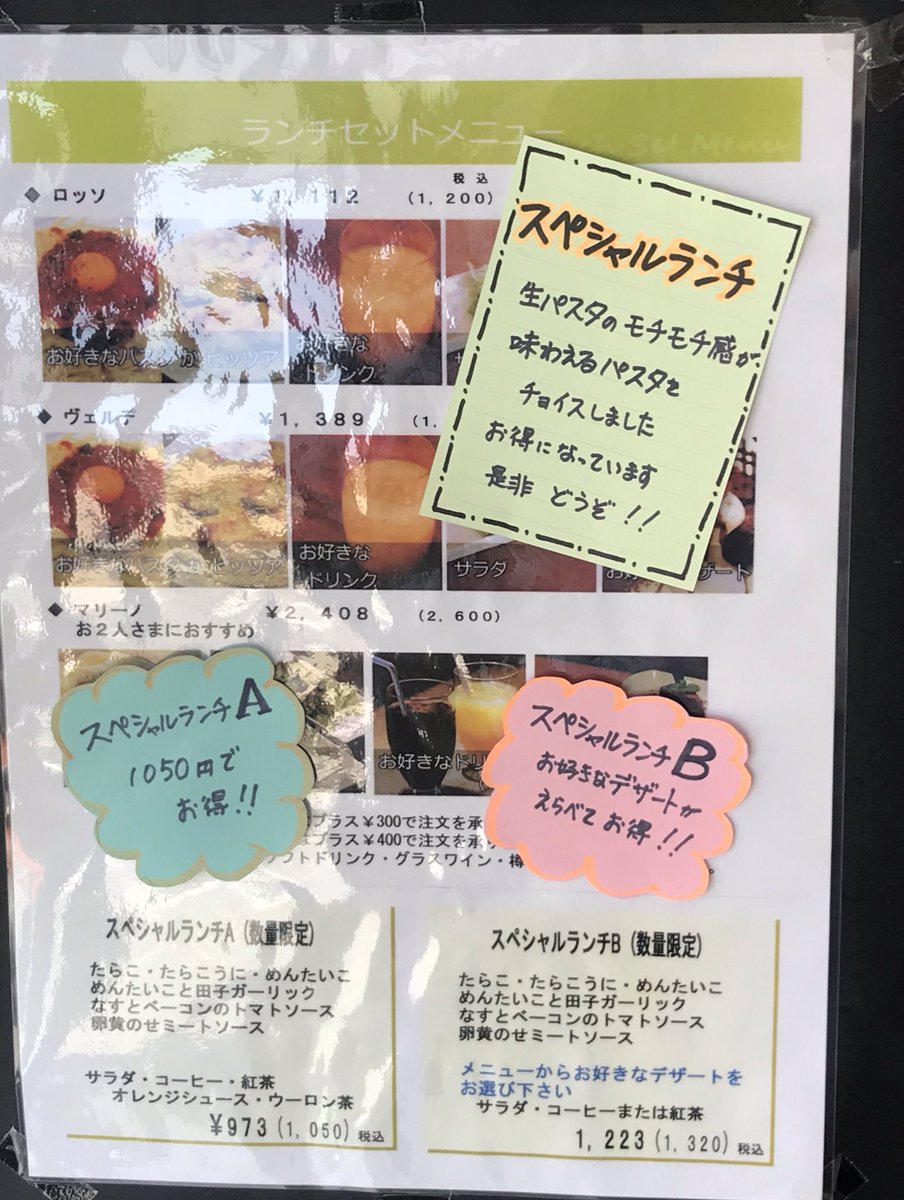 ランチセットメニュー
Set Menu
◆ ロッソ ¥1,112 税込 (1,200)
お好きなパスタかピッツァ
お好きな
ドリンク
◆ ヴェルデ ¥1,389 (1,
お好きなパスタかピッツァ
お好きな
ドリンク
サラダ
◆ マリーノ ¥2,408 (2,600)
お2人さまにおすすめ
お好きなドリ
スペシャルランチ
生パスタのモチモチ感が
味わえるパスタを
チョイスしました
お得になっています
是非 どうぞ!!
スペシャルランチA
1050円で
お得!!
スペシャルランチB
お好きなデザートが
えらべてお得!!
プラス¥300で注文を承
プラス¥400で注文を承
フトドリンク・グラスワイン・樽
スペシャルランチA(数量限定)
たらこ・たらこうに・めんたいこ
めんたいこと田子ガーリック
なすとベーコンのトマトソース
卵黄のせミートソース
サラダ・コーヒー・紅茶
オレンジシュース・ウーロン茶
¥973(1,050)税込
スペシャルランチB(数量限定)
たらこ・たらこうに・めんたいこ
めんたいこと田子ガーリック
なすとベーコンのトマトソース
卵黄のせミートソース
メニューからお好きなデザートを
お選び下さい
サラダ・コーヒーまたは紅茶
1,223(1,320)税込